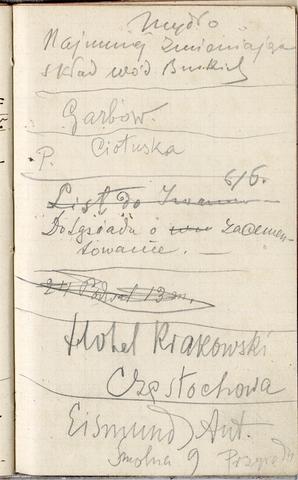 Mydło
Najmniej zmieniające
skład wód Buskich
Garbów.
P. Ciotuska
6/6.
List do
Do Lgsiadu o zacemen-
towanie. —
24 13
Hotel Krakowski
Częstochowa
Eismund Ant.
Smolna 9